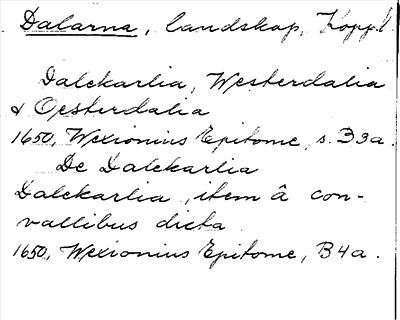 Dalarna, landskap, Koppl
Dalekarlia, Westerdalia
& Oesterdalia
1650, Wexionius Epitome, s. B3a.
De Dalekarlia
Dalekarlia, item â con-
vallibus dicta
1650, Wexionius Epitome, B4a.